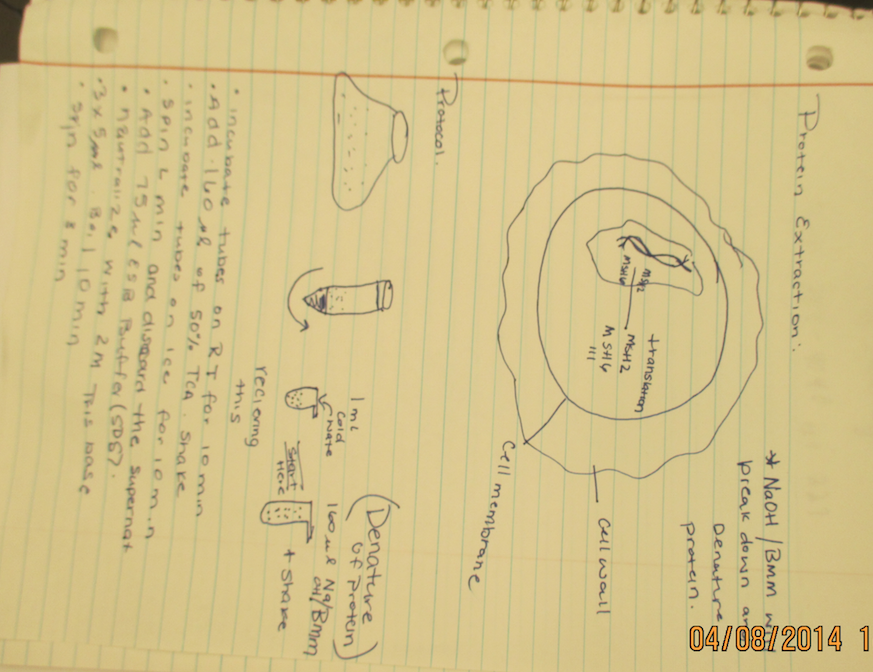 Protein Extraction:
* NaOH/BMM
break down
Denature
protein.
MSH2
MSH6
translation
MSH2
MSH6
Cell wall
Cell membrane
Protocol.
(Denature
of protein)
1 mL
Cold
Wate
160 ul Na
OH/BMM
+ Shake
Start
Here
recieving
this
• incubate tubes on RT for 10 min
• Add 160 ul of 50% Tca. shake
• incubate tubes on ice for 10 min
• Spin 4 min and discard the supernat
• Add 75 ul ESB Buffer (SDS).
• Nautralize with 2M Tris base
• 3 x 5ul. Boil 10 min
• Spin for 8 min
04/08/2014 1